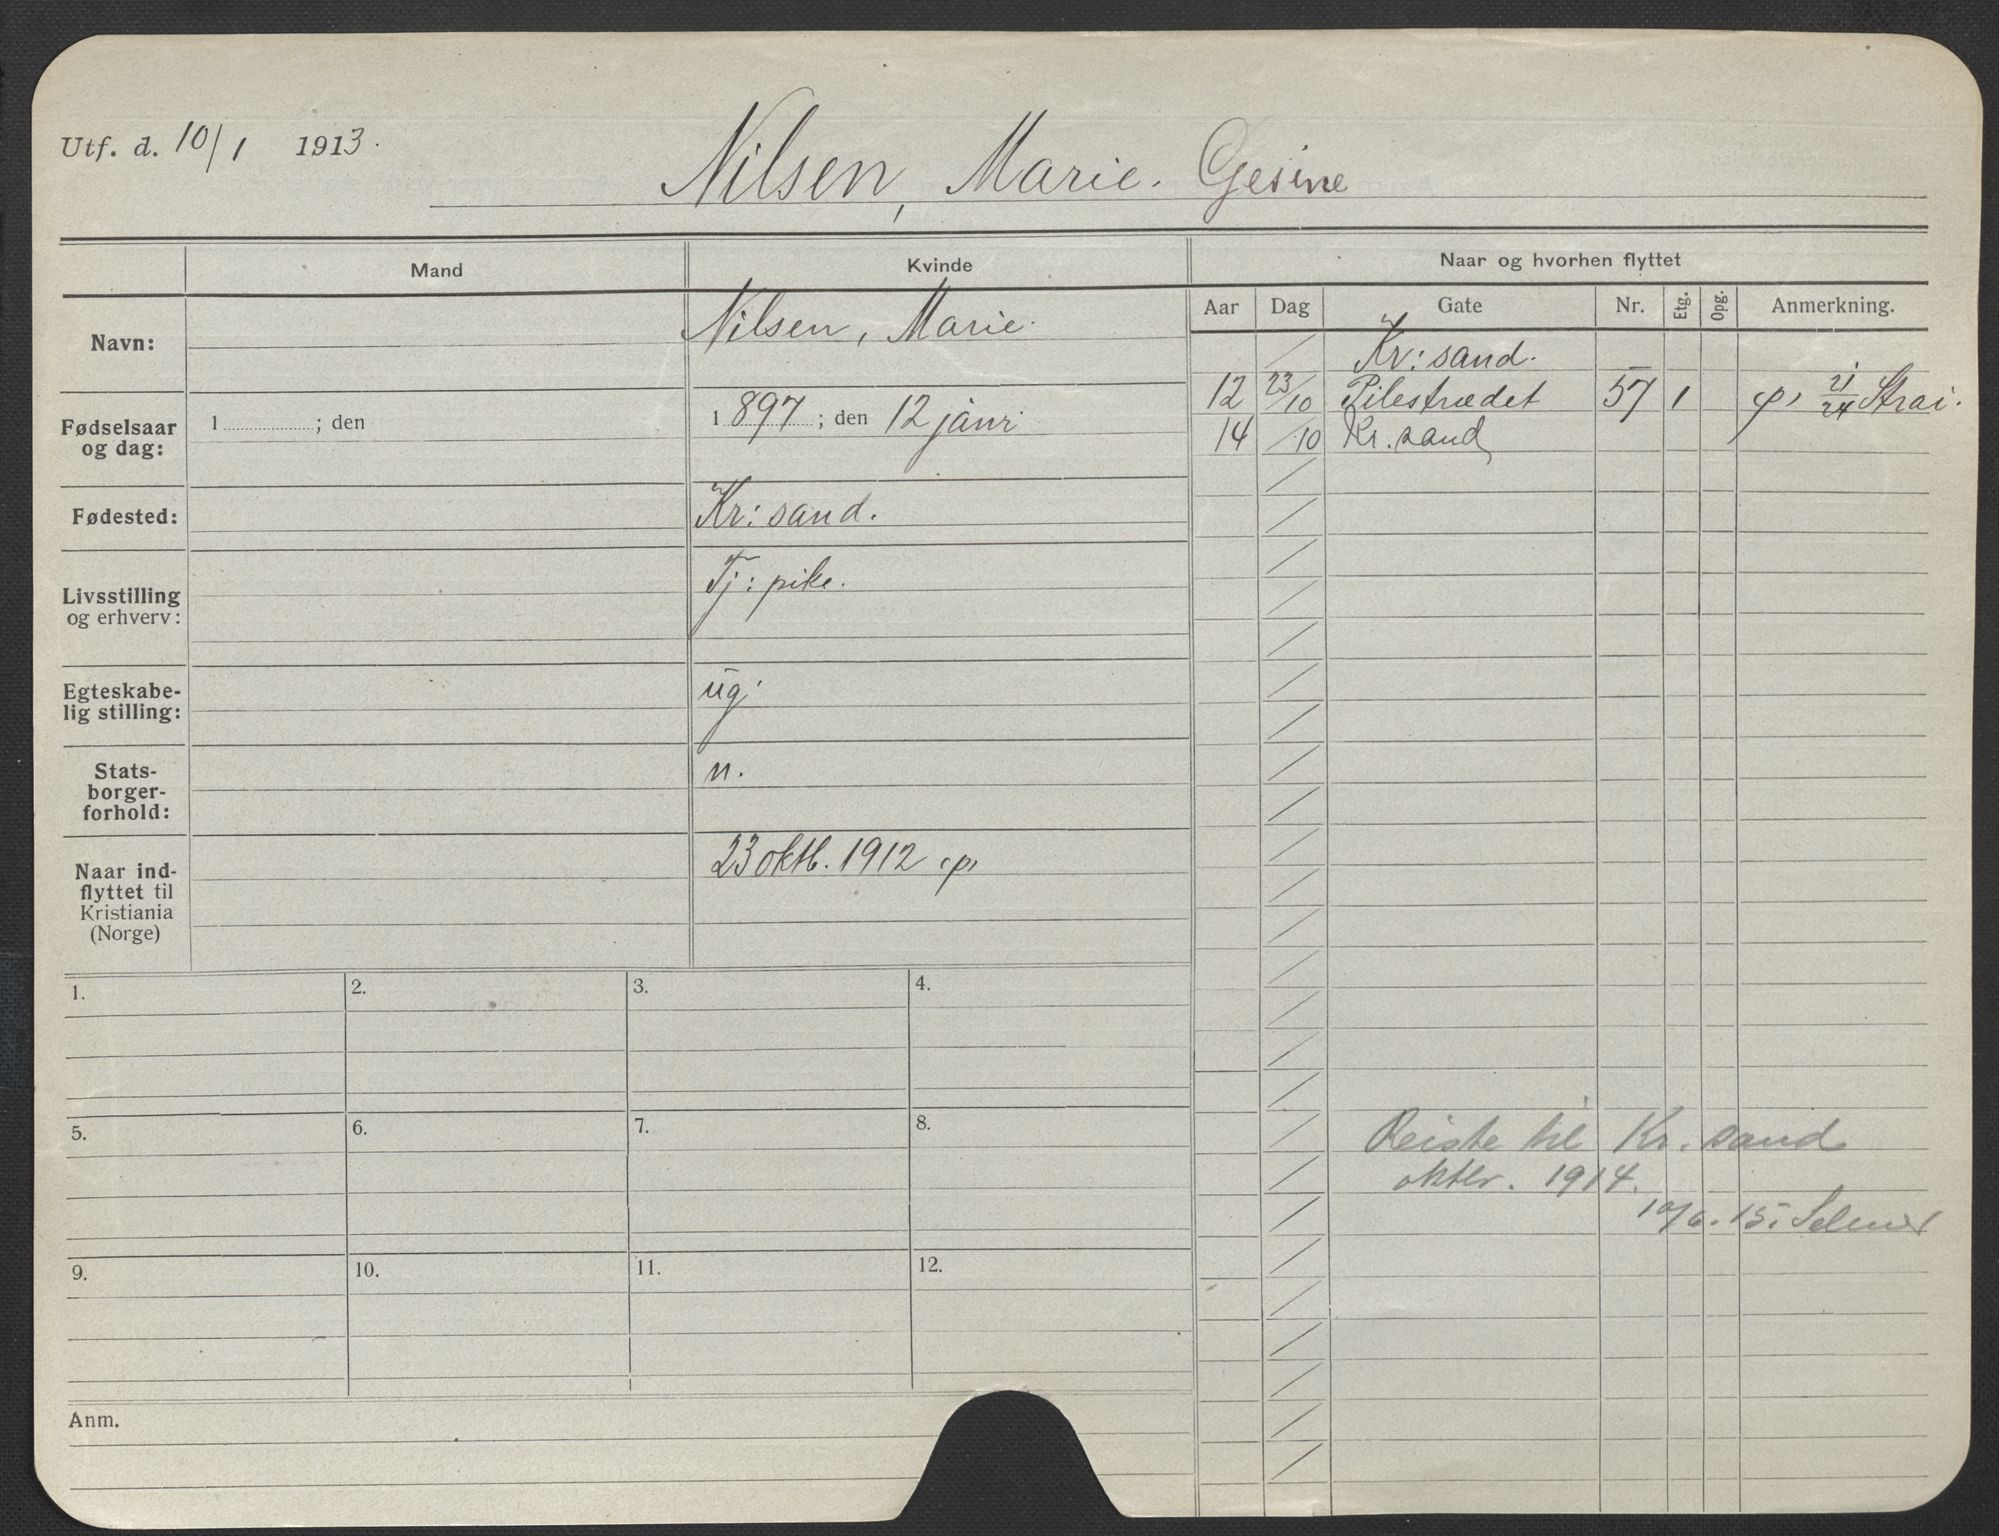 Utf. d. 10/1 1913.
Nilsen, Marie. Gesine
Mand
Kvinde
Naar og hvorhen flyttet
Aar Dag Gate Nr. Etg. Opg. Anmerkning.
Navn:
Nilsen, Marie.
Fødselsaar
og dag:
1 ; den
1 897 ; den 12 janr
Fødested:
Kr: sand.
Livsstilling
og erhverv:
Tj: pike.
Egteskabe-
lig stilling:
ug.
Stats-
borger-
forhold:
n.
Naar ind-
flyttet til
Kristiania
(Norge)
23 oktb. 1912
Kr: sand.
12 23/10 Pilestrædet 57 1 21/24
14 /10 Kr. sand
1. 2. 3. 4.
5. 6. 7. 8.
9. 10. 11. 12.
Reiste til Kr. sand
oktbr. 1914.
10/6. 15.
Anm.